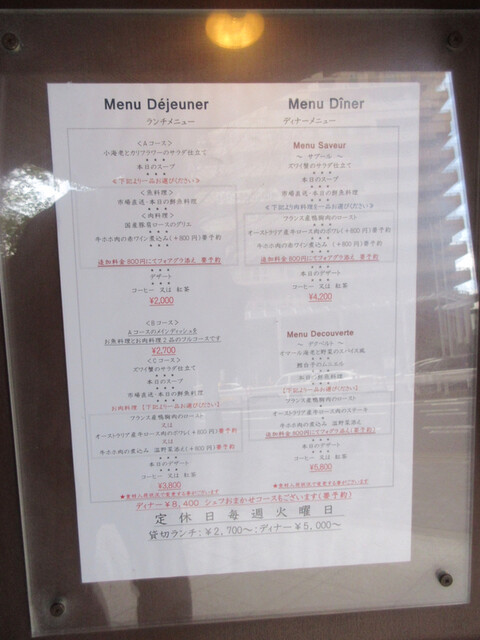 Menu Déjeuner
ランチメニュー
<Aコース>
小海老とカリフラワーのサラダ仕立て
本日のスープ
<下記より一品お選びください>
<魚料理>
市場直送・本日の鮮魚料理
<肉料理>
国産豚肩ロースのグリエ
牛ホホ肉の赤ワイン煮込み(+800円)要予約
追加料金800円にてフォアグラ添え 要予約
デザート
コーヒー 又は 紅茶
¥2,000
<Bコース>
AコースのメインディッシュをB
お魚料理とお肉料理2品のフルコースです
¥2,700
<Cコース>
ズワイ蟹のサラダ仕立て
本日のスープ
市場直送・本日の鮮魚料理
お肉料理【下記より一品お選びください】
フランス産鴨胸肉のロースト
又は
オーストラリア産牛ロース肉のポワレ(+600円)要予約
又は
牛ホホ肉の煮込み 温野菜添え(+600円)要予約
本日のデザート
コーヒー 又は 紅茶
¥3,800
★食材入荷状況で変更する事がございます
Menu Dîner
ディナーメニュー
Menu Saveur
~ サブール ~
ズワイ蟹のサラダ仕立て
本日のスープ
市場直送・本日の鮮魚料理
<下記より肉料理を一品お選びください>
フランス産鴨胸肉のロースト
オーストラリア産牛ロース肉のポワレ(+800円)要予約
牛ホホ肉の赤ワイン煮込み(+800円)要予約
追加料金800円にてフォアグラ添え 要予約
本日のデザート
コーヒー 又は 紅茶
¥4,200
Menu Decouverte
オマール海老と野菜のスパイス風
本日の鮮魚料理
【下記よりお選びください】
フランス産鴨胸肉のロースト
オーストラリア産牛ロース肉のステーキ
牛ホホ肉の煮込み 温野菜添え
追加料金800円にてフォアグラ添え(要予約)
本日のデザート
コーヒー 又は 紅茶
¥5,800
★食材入荷状況で変更する事がございます
ディナー¥8,400 シェフおまかせコースもございます(要予約)
定休日毎週火曜日
貸切ランチ:¥2,700~:ディナー¥5,000~